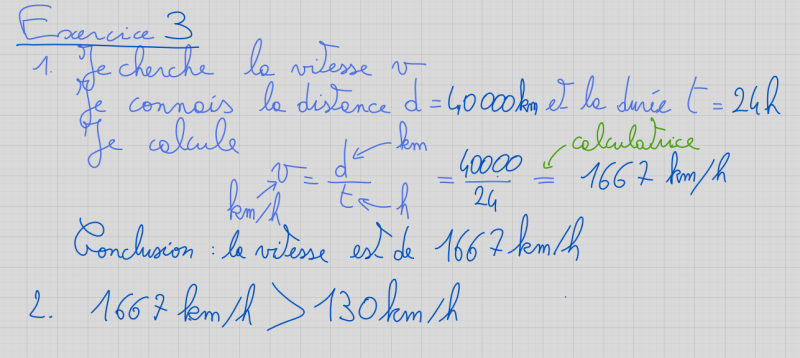 Exercice 3
1. Je cherche la vitesse v
Je connais la distance d = 40000 km et la durée t = 24h
Je calcule
calculatrice
v = d/t = 40000/24 = 1667 km/h
km
km/h
h
Conclusion : la vitesse est de 1667 km/h
2. 1667 km/h > 130 km/h